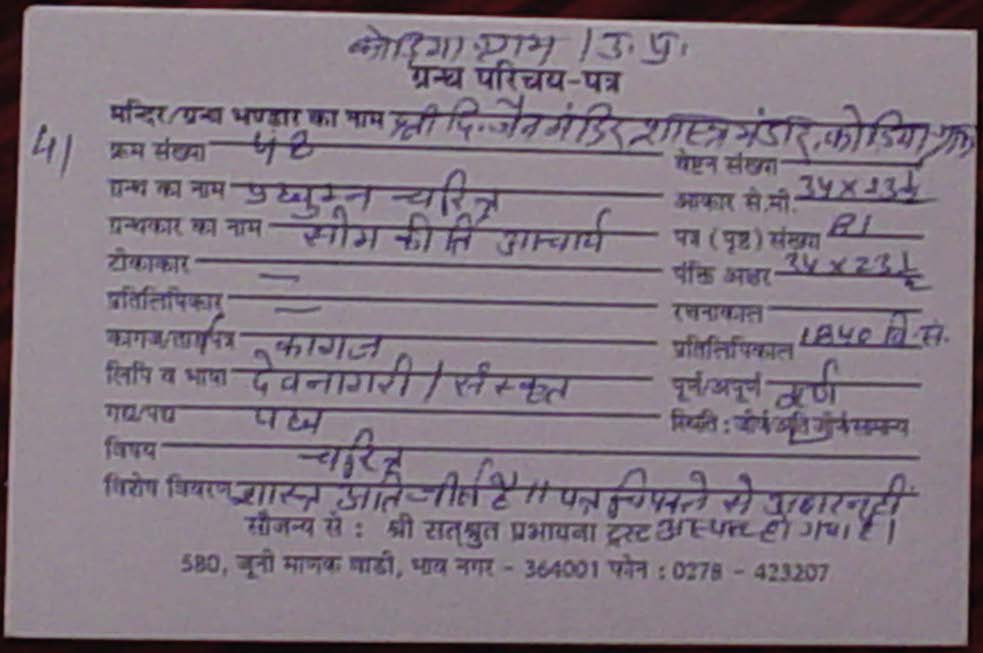 कोडिया ग्राम / उ. प्र.
ग्रन्थ परिचय-पत्र
मन्दिर/ग्रन्थ भण्डार का नाम श्री दि. जैन मंदिर शास्त्र भंडार, कोडिया ग्राम
41
क्रम संख्या
वेष्टन संख्या
ग्रन्थ का नाम प्रद्युम्न चरित्र
आकार से.मी. 34 x 23½
ग्रन्थकार का नाम सोम कीर्ति आचार्य
पत्र (पृष्ठ) संख्या 81
टीकाकार —
पंक्ति अक्षर 34 x 23½
प्रतिलिपिकार —
रचनाकाल
कागज/ताड़पत्र कागज
प्रतिलिपिकाल 1840 वि. सं.
लिपि व भाषा देवनागरी / संस्कृत
पूर्ण/अपूर्ण पूर्ण
गद्य/पद्य पद्य
स्थिति : जीर्ण/अति जीर्ण/सामान्य
विषय चरित्र
विशेष विवरण शास्त्र अति जीर्ण है ॥ पत्र चिपकने से अक्षर नहीं
सौजन्य से : श्री सत्श्रुत प्रभावना ट्रस्ट अस्पष्ट हो गया है।
580, जूनी माणक वाडी, भाव नगर - 364001 फोन : 0278 - 423207